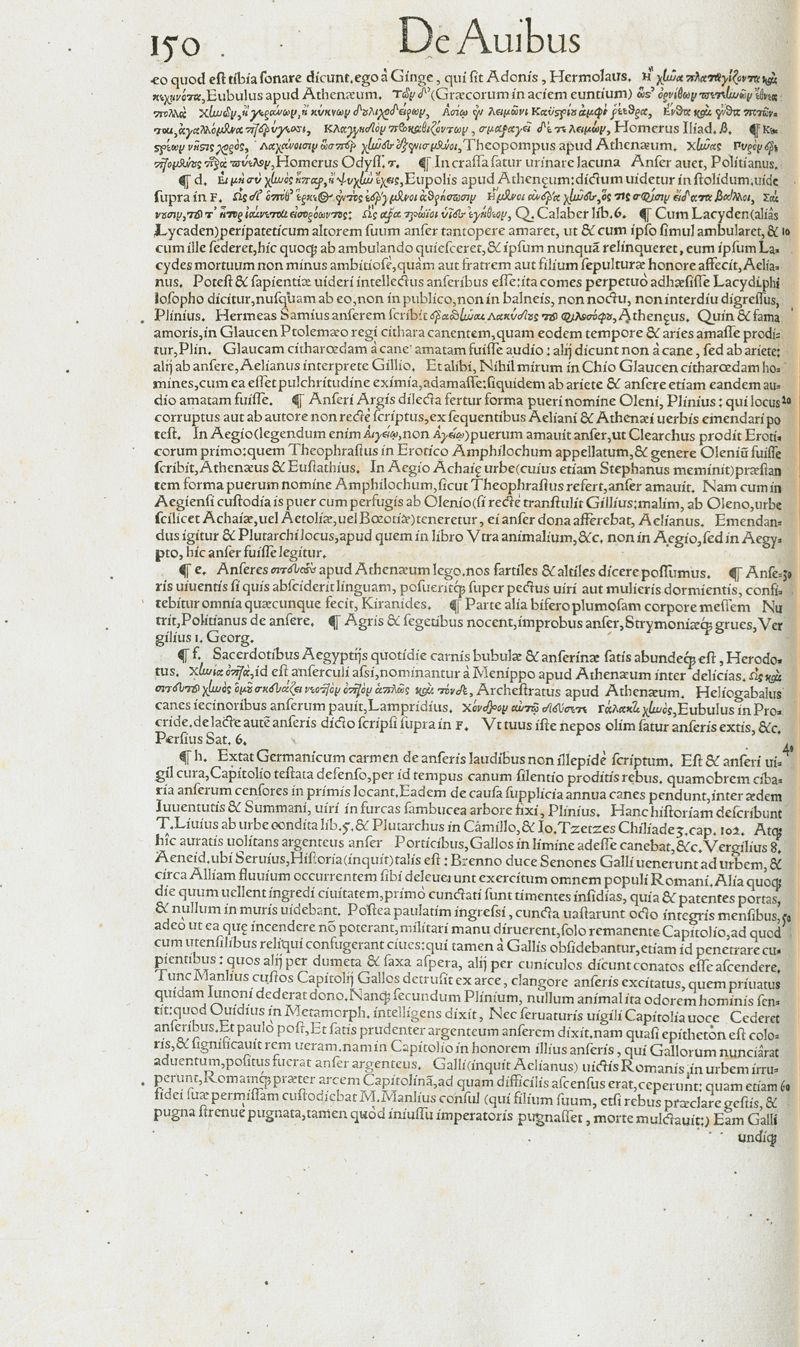 150 De Auibus
eo quod est tibia sonare dicunt. ego à Ginge, qui sit Adonis, Hermolaus. Ἢ χῆνα πλαταγίζοντα καὶ
κεχηνότα, Eubulus apud Athenæum. Τῶν δ' (Græcorum in aciem euntium) ὥς τ' ὀρνίθων πετεηνῶν ἔθνεα
πολλὰ Χηνῶν, ἢ γεράνων, ἢ κύκνων δουλιχοδείρων, Ἀσίῳ ἐν λειμῶνι Καϋστρίου ἀμφὶ ῥέεθρα, Ἔνθα καὶ ἔνθα ποτῶν-
ται, ἀγαλλόμενα πτερύγεσσι, Κλαγγηδὸν προκαθιζόντων, σμαραγεῖ δέ τε λειμών, Homerus Iliad. β. ¶
Theopompus apud Athenæum.
Homerus Odyss. τ. ¶ In crassa satur urinare lacuna Anser auet, Politianus.
¶ d. Εἰ μὴ σὺ χηνὸς ἧπαρ, ἢ ψυχὴν ἔχεις, Eupolis apud Athenęum: dictum uidetur in stolidum. uide
supra in F.
Q. Calaber lib. 6. ¶ Cum Lacyden (aliâs
Lycaden) peripateticum altorem suum anser tantopere amaret, ut & cum ipso simul ambularet, & 10
cum ille sederet, hic quoq; ab ambulando quiesceret, & ipsum nunquã relinqueret, eum ipsum La-
cydes mortuum non minus ambitiosè, quàm aut fratrem aut filium sepulturæ honore affecit, Aelia-
nus. Potest & sapientiæ uideri intellectus anseribus esse: ita comes perpetuò adhæsisse Lacydi phi
losopho dicitur, nusquam ab eo, non in publico, non in balneis, non noctu, non interdiu digressus,
Plinius. Hermeas Samius anserem scribit ἐρασθῆναι Λακύδους τοῦ φιλοσόφου, Athenęus. Quin & fama
amoris, in Glaucen Ptolemæo regi cithara canentem, quam eodem tempore & aries amasse prodi-
tur, Plin. Glaucam citharœdam à cane amatam fuisse audio: alij dicunt non à cane, sed ab ariete:
alij ab ansere, Aelianus interprete Gillio. Et alibi, Nihil mirum in Chio Glaucen citharœdam ho-
mines, cum ea esset pulchritudine eximia, adamasse: siquidem ab ariete & ansere etiam eandem au-
dio amatam fuisse. ¶ Anseri Argis dilecta fertur forma pueri nomine Oleni, Plinius: qui locus 20
corruptus aut ab autore non rectè scriptus, ex sequentibus Aeliani & Athenæi uerbis emendari po
test. In Aegio (legendum enim Αἰγείῳ, non Ἀργείῳ) puerum amauit anser, ut Clearchus prodit Eroti-
corum primo: quem Theophrastus in Erotico Amphilochum appellatum, & genere Oleniũ fuisse
scribit, Athenæus & Eustathius. In Aegio Achaię urbe (cuius etiam Stephanus meminit) præstan
tem forma puerum nomine Amphilochum, sicut Theophrastus refert, anser amauit. Nam cum in
Aegiensi custodia is puer cum perfugis ab Olenio (si rectè transtulit Gillius: malim, ab Oleno, urbe
scilicet Achaiæ, uel Aetoliæ, uel Bœotiæ) teneretur, ei anser dona afferebat, Aelianus. Emendan-
dus igitur & Plutarchi locus, apud quem in libro Vtra animalium, &c. non in Aegio, sed in Aegy-
pto, hic anser fuisse legitur.
¶ e. Anseres σιτευτοὺς apud Athenæum lego. nos fartiles & altiles dicere possumus. ¶ Anse- 30
ris uiuentis si quis absciderit linguam, posueritq́; super pectus uiri aut mulieris dormientis, confi-
tebitur omnia quæcunque fecit, Kiranides. ¶ Parte alia bifero plumosam corpore messem Nu
trit, Politianus de ansere. ¶ Agris & segetibus nocent, improbus anser, Strymoniæq́; grues, Ver
gilius 1. Georg.
¶ f. Sacerdotibus Aegyptijs quotidie carnis bubulæ & anserinæ satis abundeq́; est, Herodo-
tus. id est anserculi assi, nominantur à Menippo apud Athenæum inter delicias.
Archestratus apud Athenæum. Heliogabalus
canes iecinoribus anserum pauit, Lampridius. Eubulus in Pro-
cride. de lacte autẽ anseris dicto scripsi supra in F. Vt tuus iste nepos olim satur anseris extis, &c.
Persius Sat. 6.
¶ h. Extat Germanicum carmen de anseris laudibus non illepidè scriptum. Est & anseri ui- 40
gil cura, Capitolio testata defenso, per id tempus canum silentio proditis rebus. quamobrem ciba-
ria anserum censores in primis locant. Eadem de causa supplicia annua canes pendunt, inter ædem
Iuuentutis & Summani, uiri in furcas sambucea arbore fixi, Plinius. Hanc historiam describunt
T. Liuius ab urbe condita lib. 5. & Plutarchus in Camillo, & Io. Tzetzes Chiliade 3. cap. 102. Atq;
hîc auratis uolitans argenteus anser Porticibus, Gallos in limine adesse canebat, &c. Vergilius 8.
Aeneid. ubi Seruius, Historia (inquit) talis est: Brenno duce Senones Galli uenerunt ad urbem, &
circa Alliam fluuium occurrentem sibi deleuerunt exercitum omnem populi Romani. Alia quoq;
die quum uellent ingredi ciuitatem, primò cunctati sunt timentes insidias, quia & patentes portas,
& nullum in muris uidebant. Postea paulatim ingressi, cuncta uastarunt octo integris mensibus, 50
adeò ut ea quę incendere nõ poterant, militari manu diruerent, solo remanente Capitolio, ad quod
cum utensilibus reliqui confugerant ciues: qui tamen à Gallis obsidebantur, etiam id penetrare cu-
pientibus: quos alij per dumeta & saxa aspera, alij per cuniculos dicunt conatos esse ascendere.
Tunc Manlius custos Capitolij Gallos detrusit ex arce, clangore anseris excitatus, quem priuatus
quidam Iunoni dederat dono. Nanq; secundum Plinium, nullum animal ita odorem hominis sen-
tit: quod Ouidius in Metamorph. intelligens dixit, Nec seruaturis uigili Capitolia uoce Cederet
anseribus. Et paulò post, Et satis prudenter argenteum anserem dixit. nam quasi epitheton est colo-
ris, & significauit rem ueram. nam in Capitolio in honorem illius anseris, qui Gallorum nunciârat
aduentum, positus fuerat anser argenteus. Galli (inquit Aelianus) uictis Romanis in urbem irru-
perunt, Romamq́; præter arcem Capitolinã, ad quam difficilis ascensus erat, ceperunt: quam etiam 60
fidei suæ permissam custodiebat M. Manlius consul (qui filium suum, etsi rebus præclare gestis, &
pugna strenuè pugnata, tamen quòd iniussu imperatoris pugnasset, morte mulctauit:) Eam Galli
undiq;